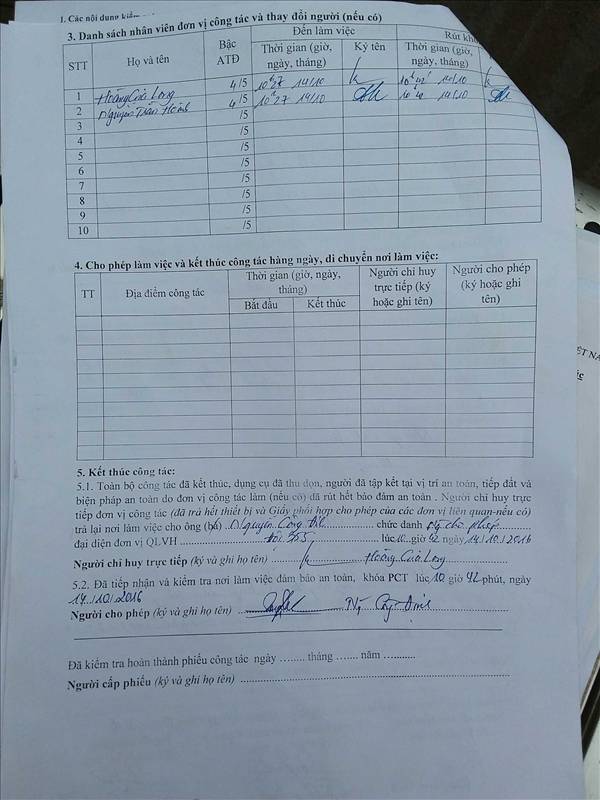 1. Các nội dung kiểm
3. Danh sách nhân viên đơn vị công tác và thay đổi người (nếu có)
STT Họ và tên Bậc ATĐ Đến làm việc Rút
Thời gian (giờ, ngày, tháng) Ký tên Thời gian (giờ, ngày, tháng)
1 Hoàng Cửu Long 4/5 10h27 14/10 14/10
2 Nguyễn Trần 4/5 10h27 14/10 14/10
3 /5
4 /5
5 /5
6 /5
7 /5
8 /5
9 /5
10 /5
4. Cho phép làm việc và kết thúc công tác hàng ngày, di chuyển nơi làm việc:
TT Địa điểm công tác Thời gian (giờ, ngày, tháng) Người chỉ huy trực tiếp (ký hoặc ghi tên) Người cho phép (ký hoặc ghi tên)
Bắt đầu Kết thúc
5. Kết thúc công tác:
5.1. Toàn bộ công tác đã kết thúc, dụng cụ đã thu dọn, người đã tập kết tại vị trí an toàn, tiếp đất và
biện pháp an toàn do đơn vị công tác làm (nếu có) đã rút hết bảo đảm an toàn . Người chỉ huy trực
tiếp đơn vị công tác (đã trả hết thiết bị và Giấy phối hợp cho phép của các đơn vị liên quan-nếu có)
trả lại nơi làm việc cho ông (bà) Nguyễn Công chức danh cho phép
đại diện đơn vị QLVH lúc 10 giờ 42 ngày 14/10/2016
Người chỉ huy trực tiếp (ký và ghi họ tên) Hoàng Cửu Long
5.2. Đã tiếp nhận và kiểm tra nơi làm việc đảm bảo an toàn, khóa PCT lúc 10 giờ 42 phút, ngày
14/10/2016
Người cho phép (ký và ghi họ tên)
Đã kiểm tra hoàn thành phiếu công tác ngày ........ tháng ....... năm ..........
Người cấp phiếu (ký và ghi họ tên)
ỆT NA